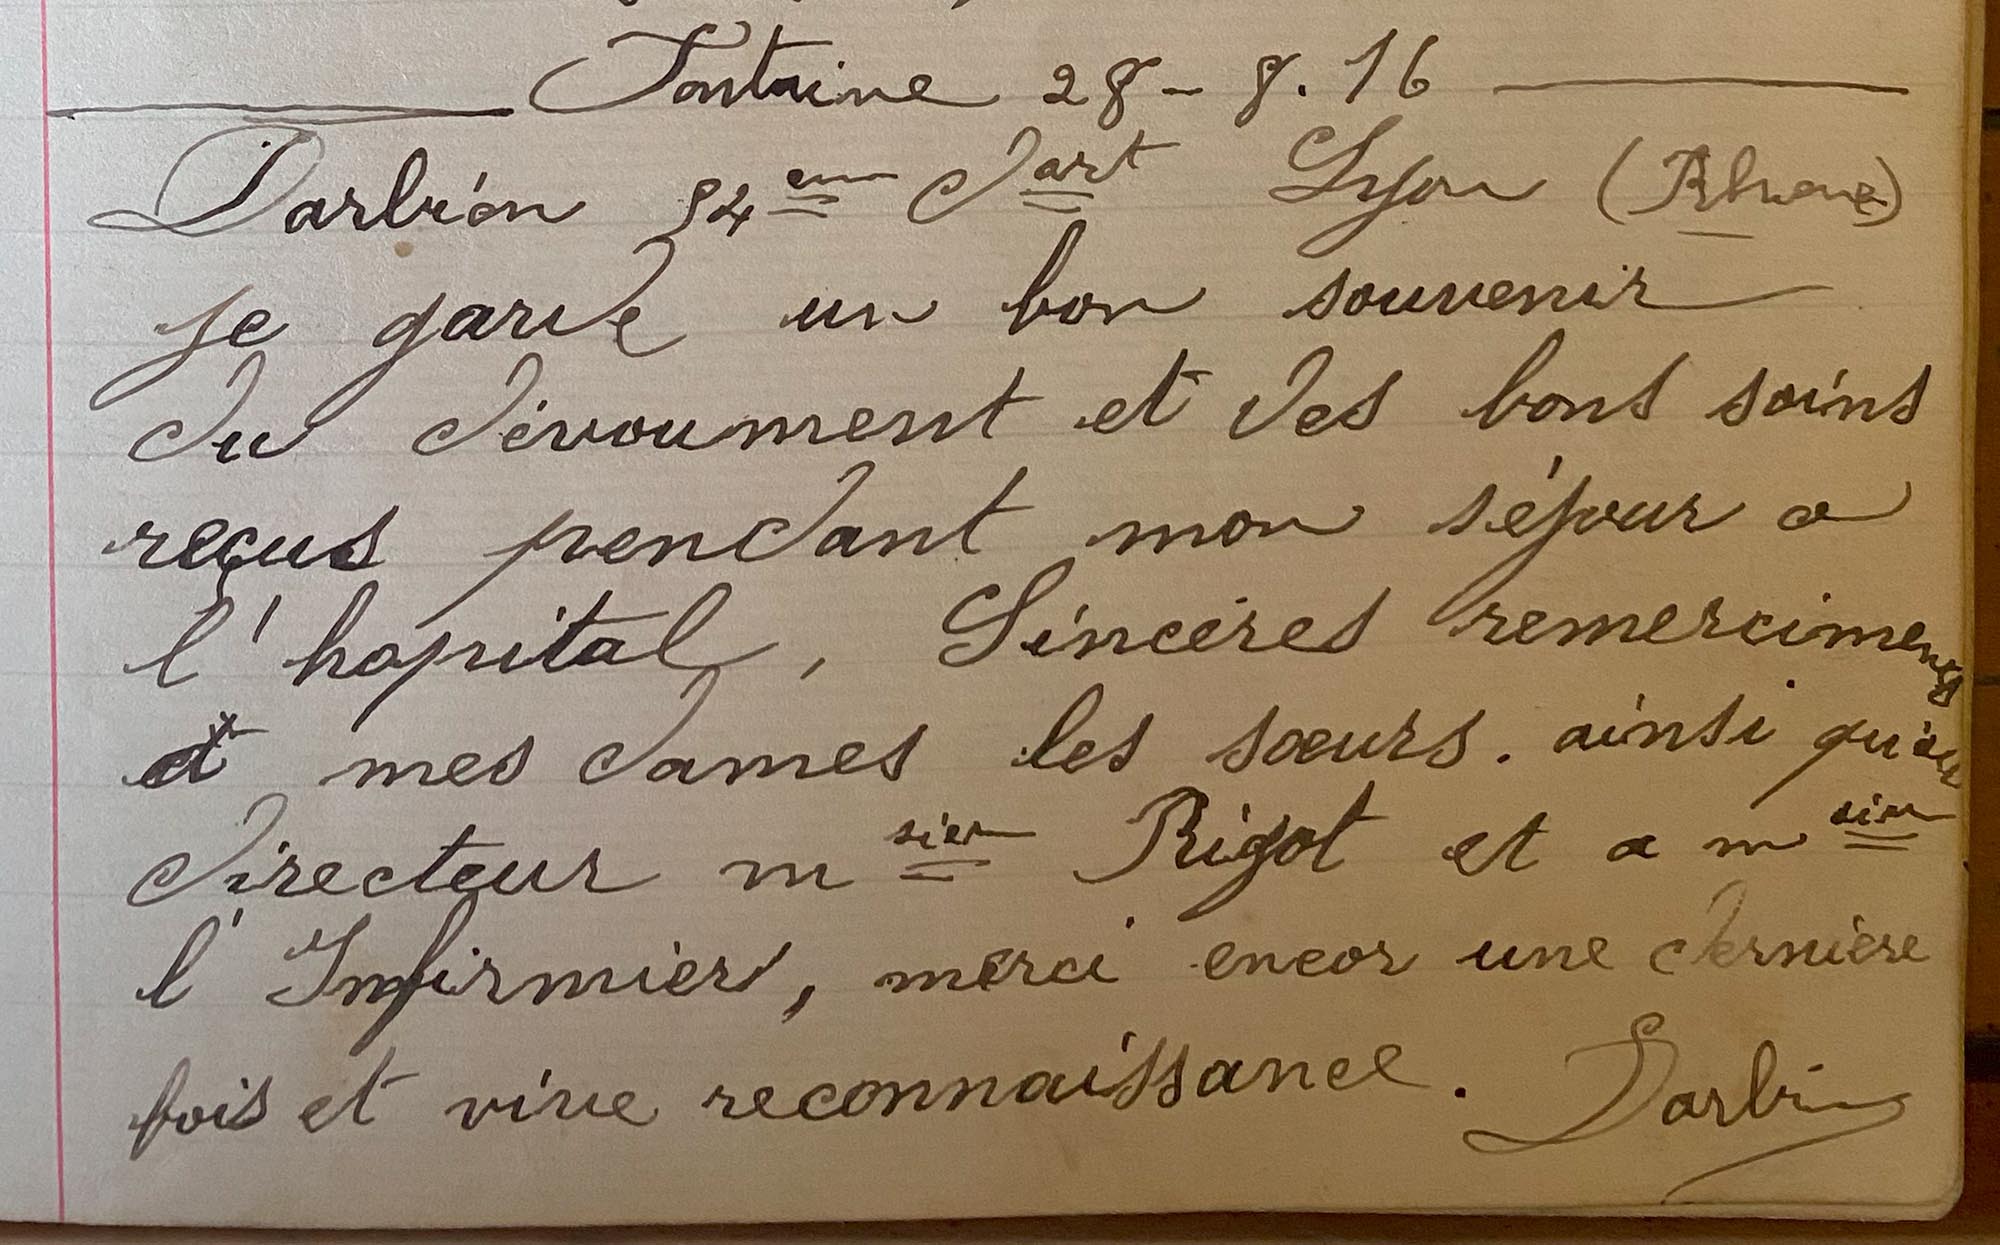 Fontaine 28 - 8. 16
Darbion 54eme d'art Lyon (Rhone)
je garde un bon souvenir
du dévoument et des bons soins
reçus pendant mon séjour a
l'hopital, Sincères remerciments
mes dames les sœurs. ainsi qu'au
directeur msieur Rigot et a msieur
l'Infirmier, merci encor une dernière
fois et vive reconnaissance.